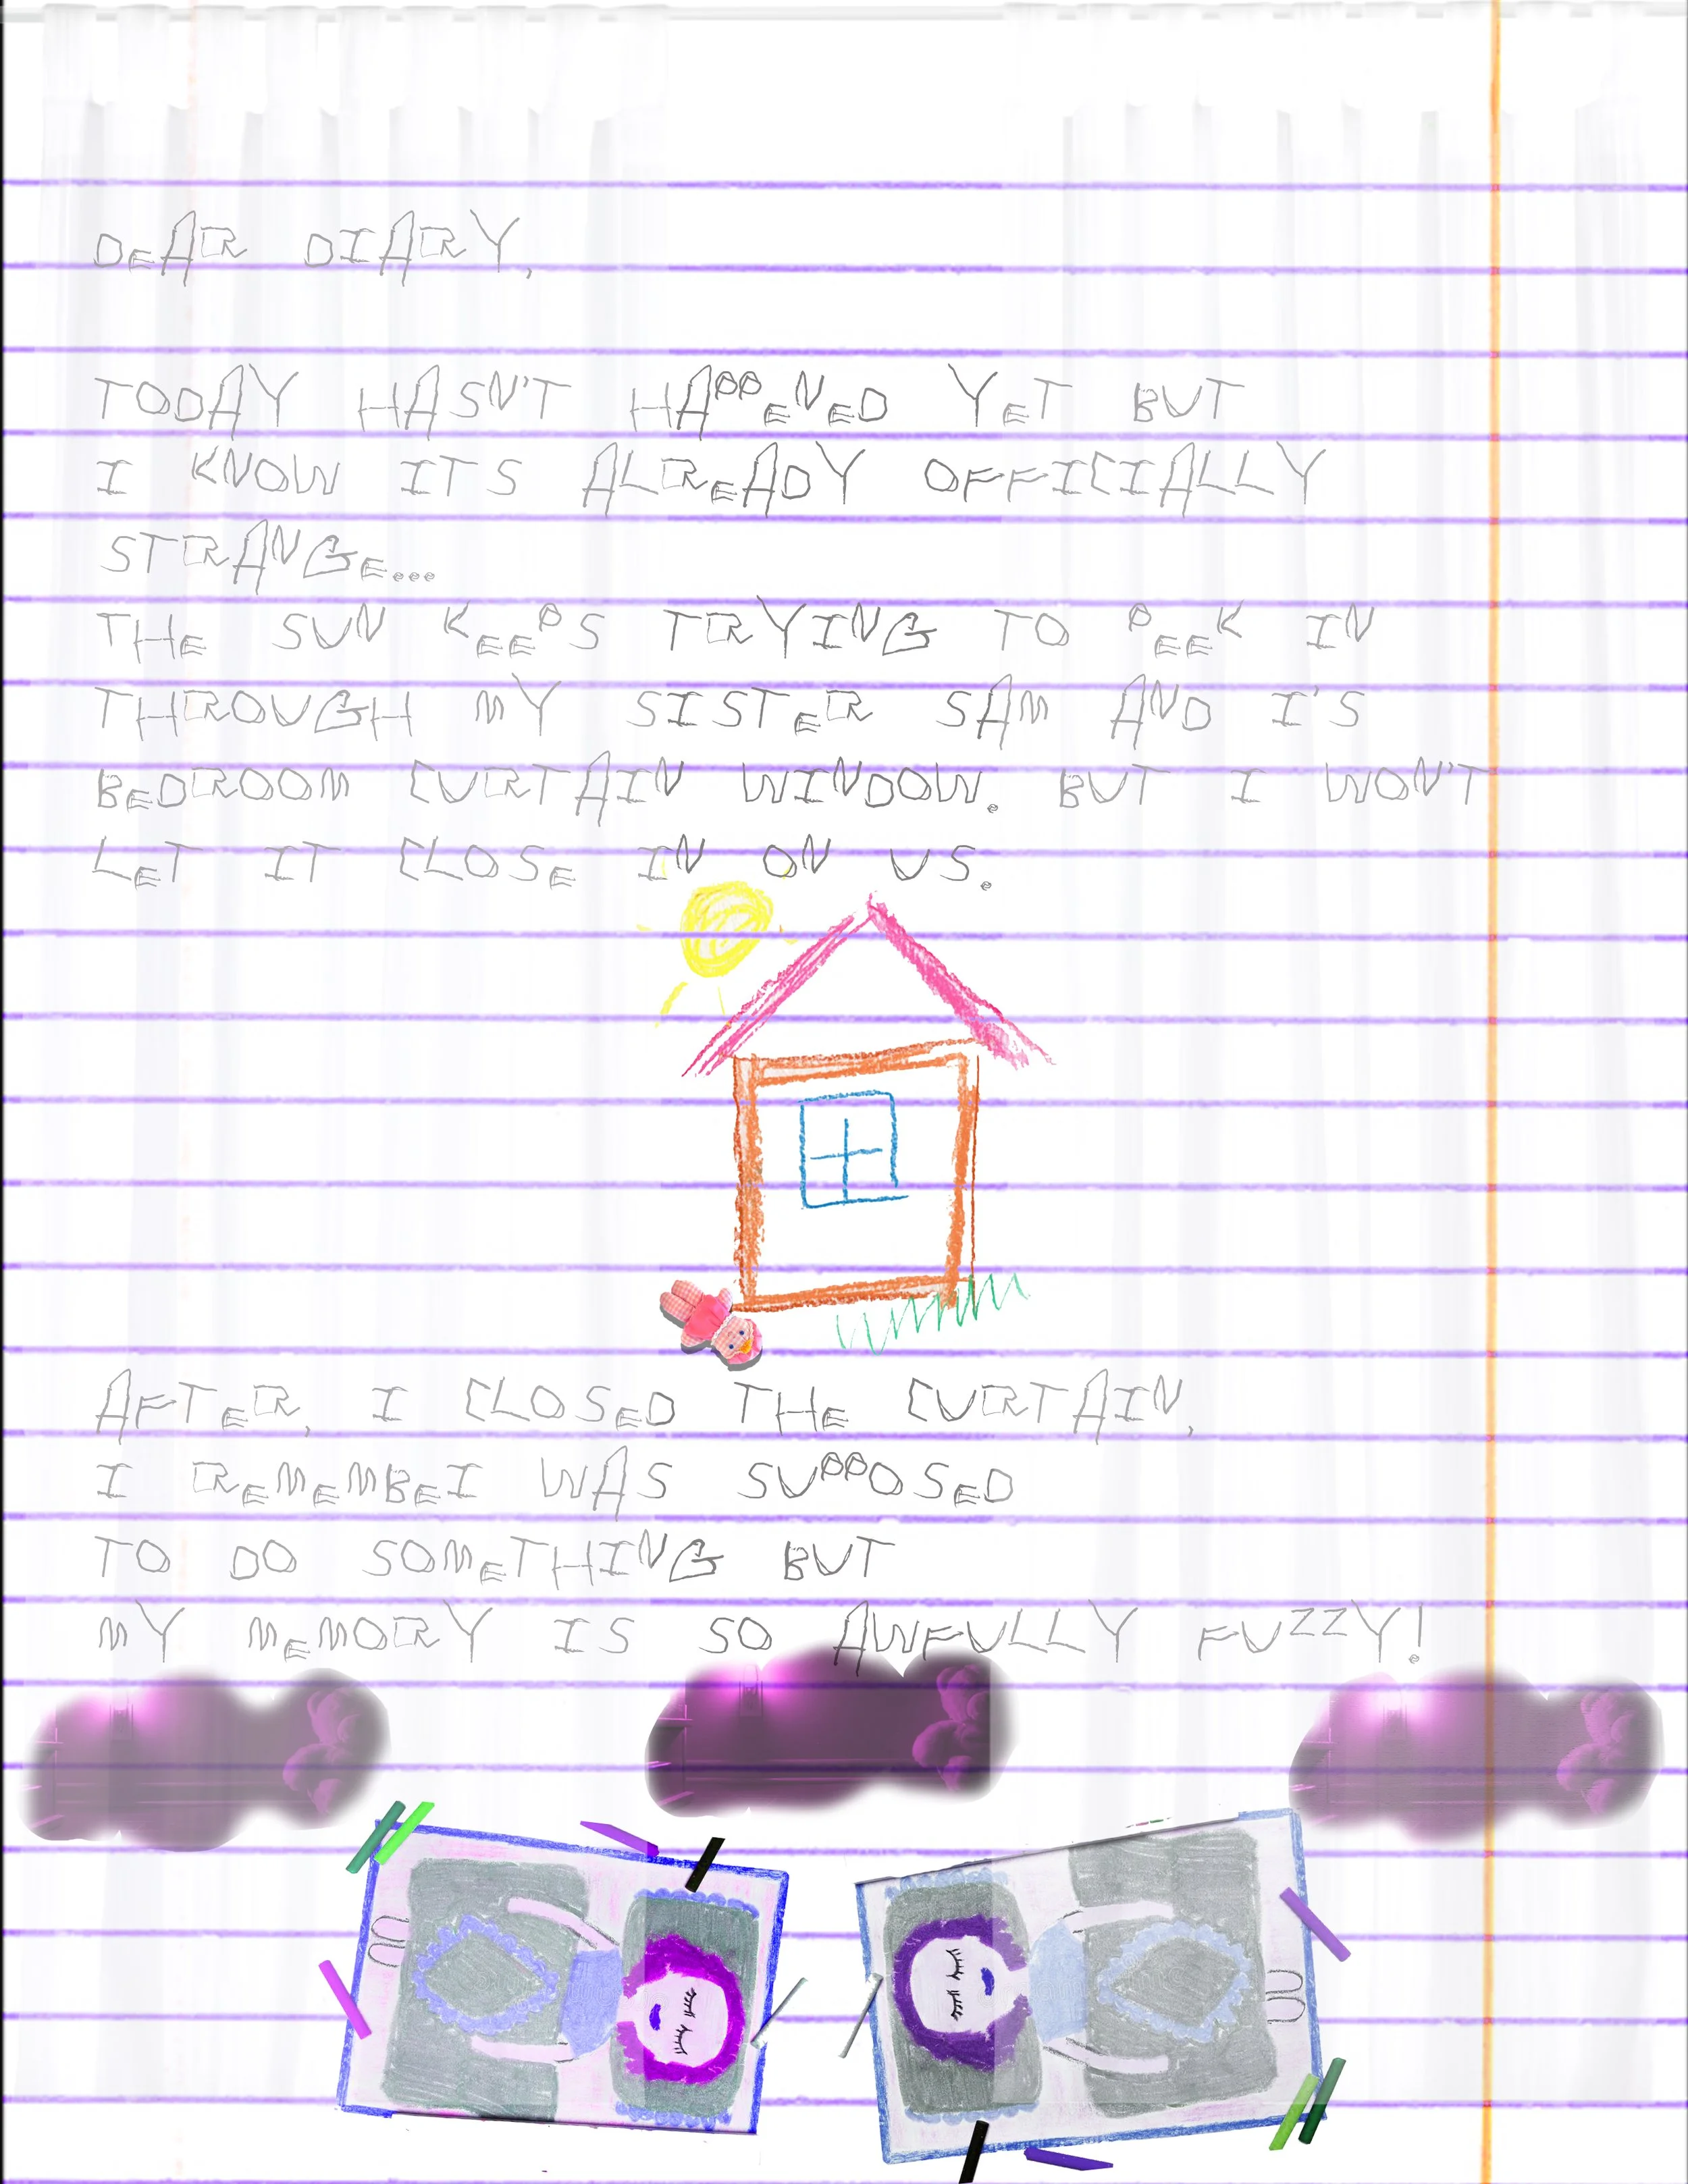 DEAR DIARY,
TODAY HASN'T HAPPENED YET BUT
I KNOW ITS ALREADY OFFICIALLY
STRANGE...
THE SUN KEEPS TRYING TO PEEK IN
THROUGH MY SISTER SAM AND I'S
BEDROOM CURTAIN WINDOW. BUT I WON'T
LET IT CLOSE IN ON US.
AFTER, I CLOSED THE CURTAIN,
I REMEMBEI WAS SUPPOSED
TO DO SOMETHING BUT
MY MEMORY IS SO AWFULLY FUZZY!